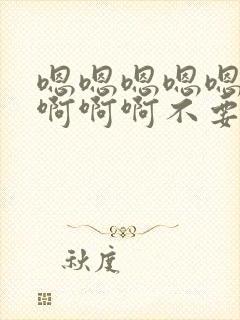 嗯嗯嗯嗯嗯
啊啊啊不要
秋度